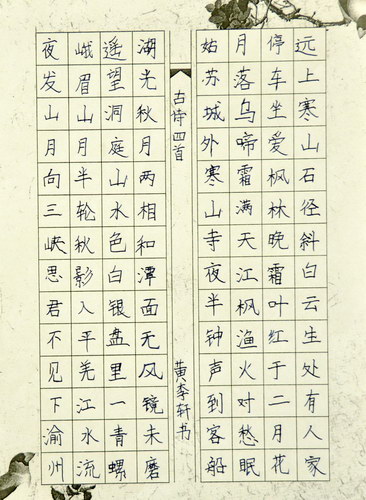 远上寒山石径斜白云生处有人家
停车坐爱枫林晚霜叶红于二月花
月落乌啼霜满天江枫渔火对愁眠
姑苏城外寒山寺夜半钟声到客船
古诗四首
黄李轩书
湖光秋月两相和潭面无风镜未磨
遥望洞庭山水色白银盘里一青螺
峨眉山月半轮秋影入平羌江水流
夜发山月向三峡思君不见下渝州